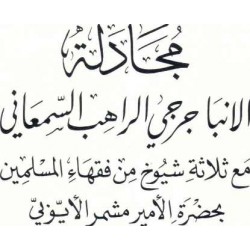 مُجَادَلَة
الانبَا جرجي الراهِب السّمعَاني
مَع ثلاثة شيُوخ مِن فقهَاء المسْلمِين
بحضْرَة الأمِير مشمر الأيّوبيّ